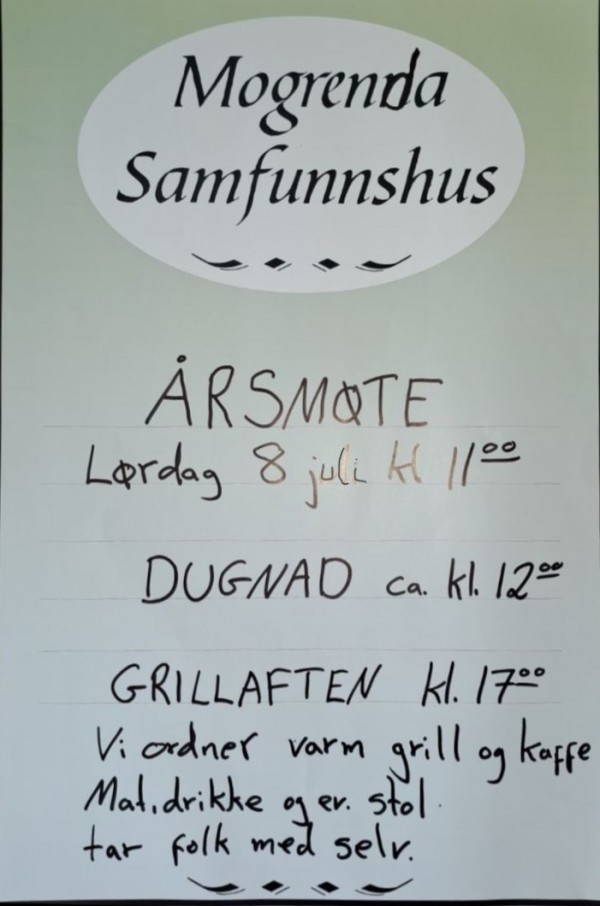 Mogrenda
Samfunnshus
ÅRSMØTE
Lørdag 8 juli kl 11⁰⁰
DUGNAD ca. kl. 12⁰⁰
GRILLAFTEN kl. 17⁰⁰
Vi ordner varm grill og kaffe
Mat, drikke og ev. stol
tar folk med selv.